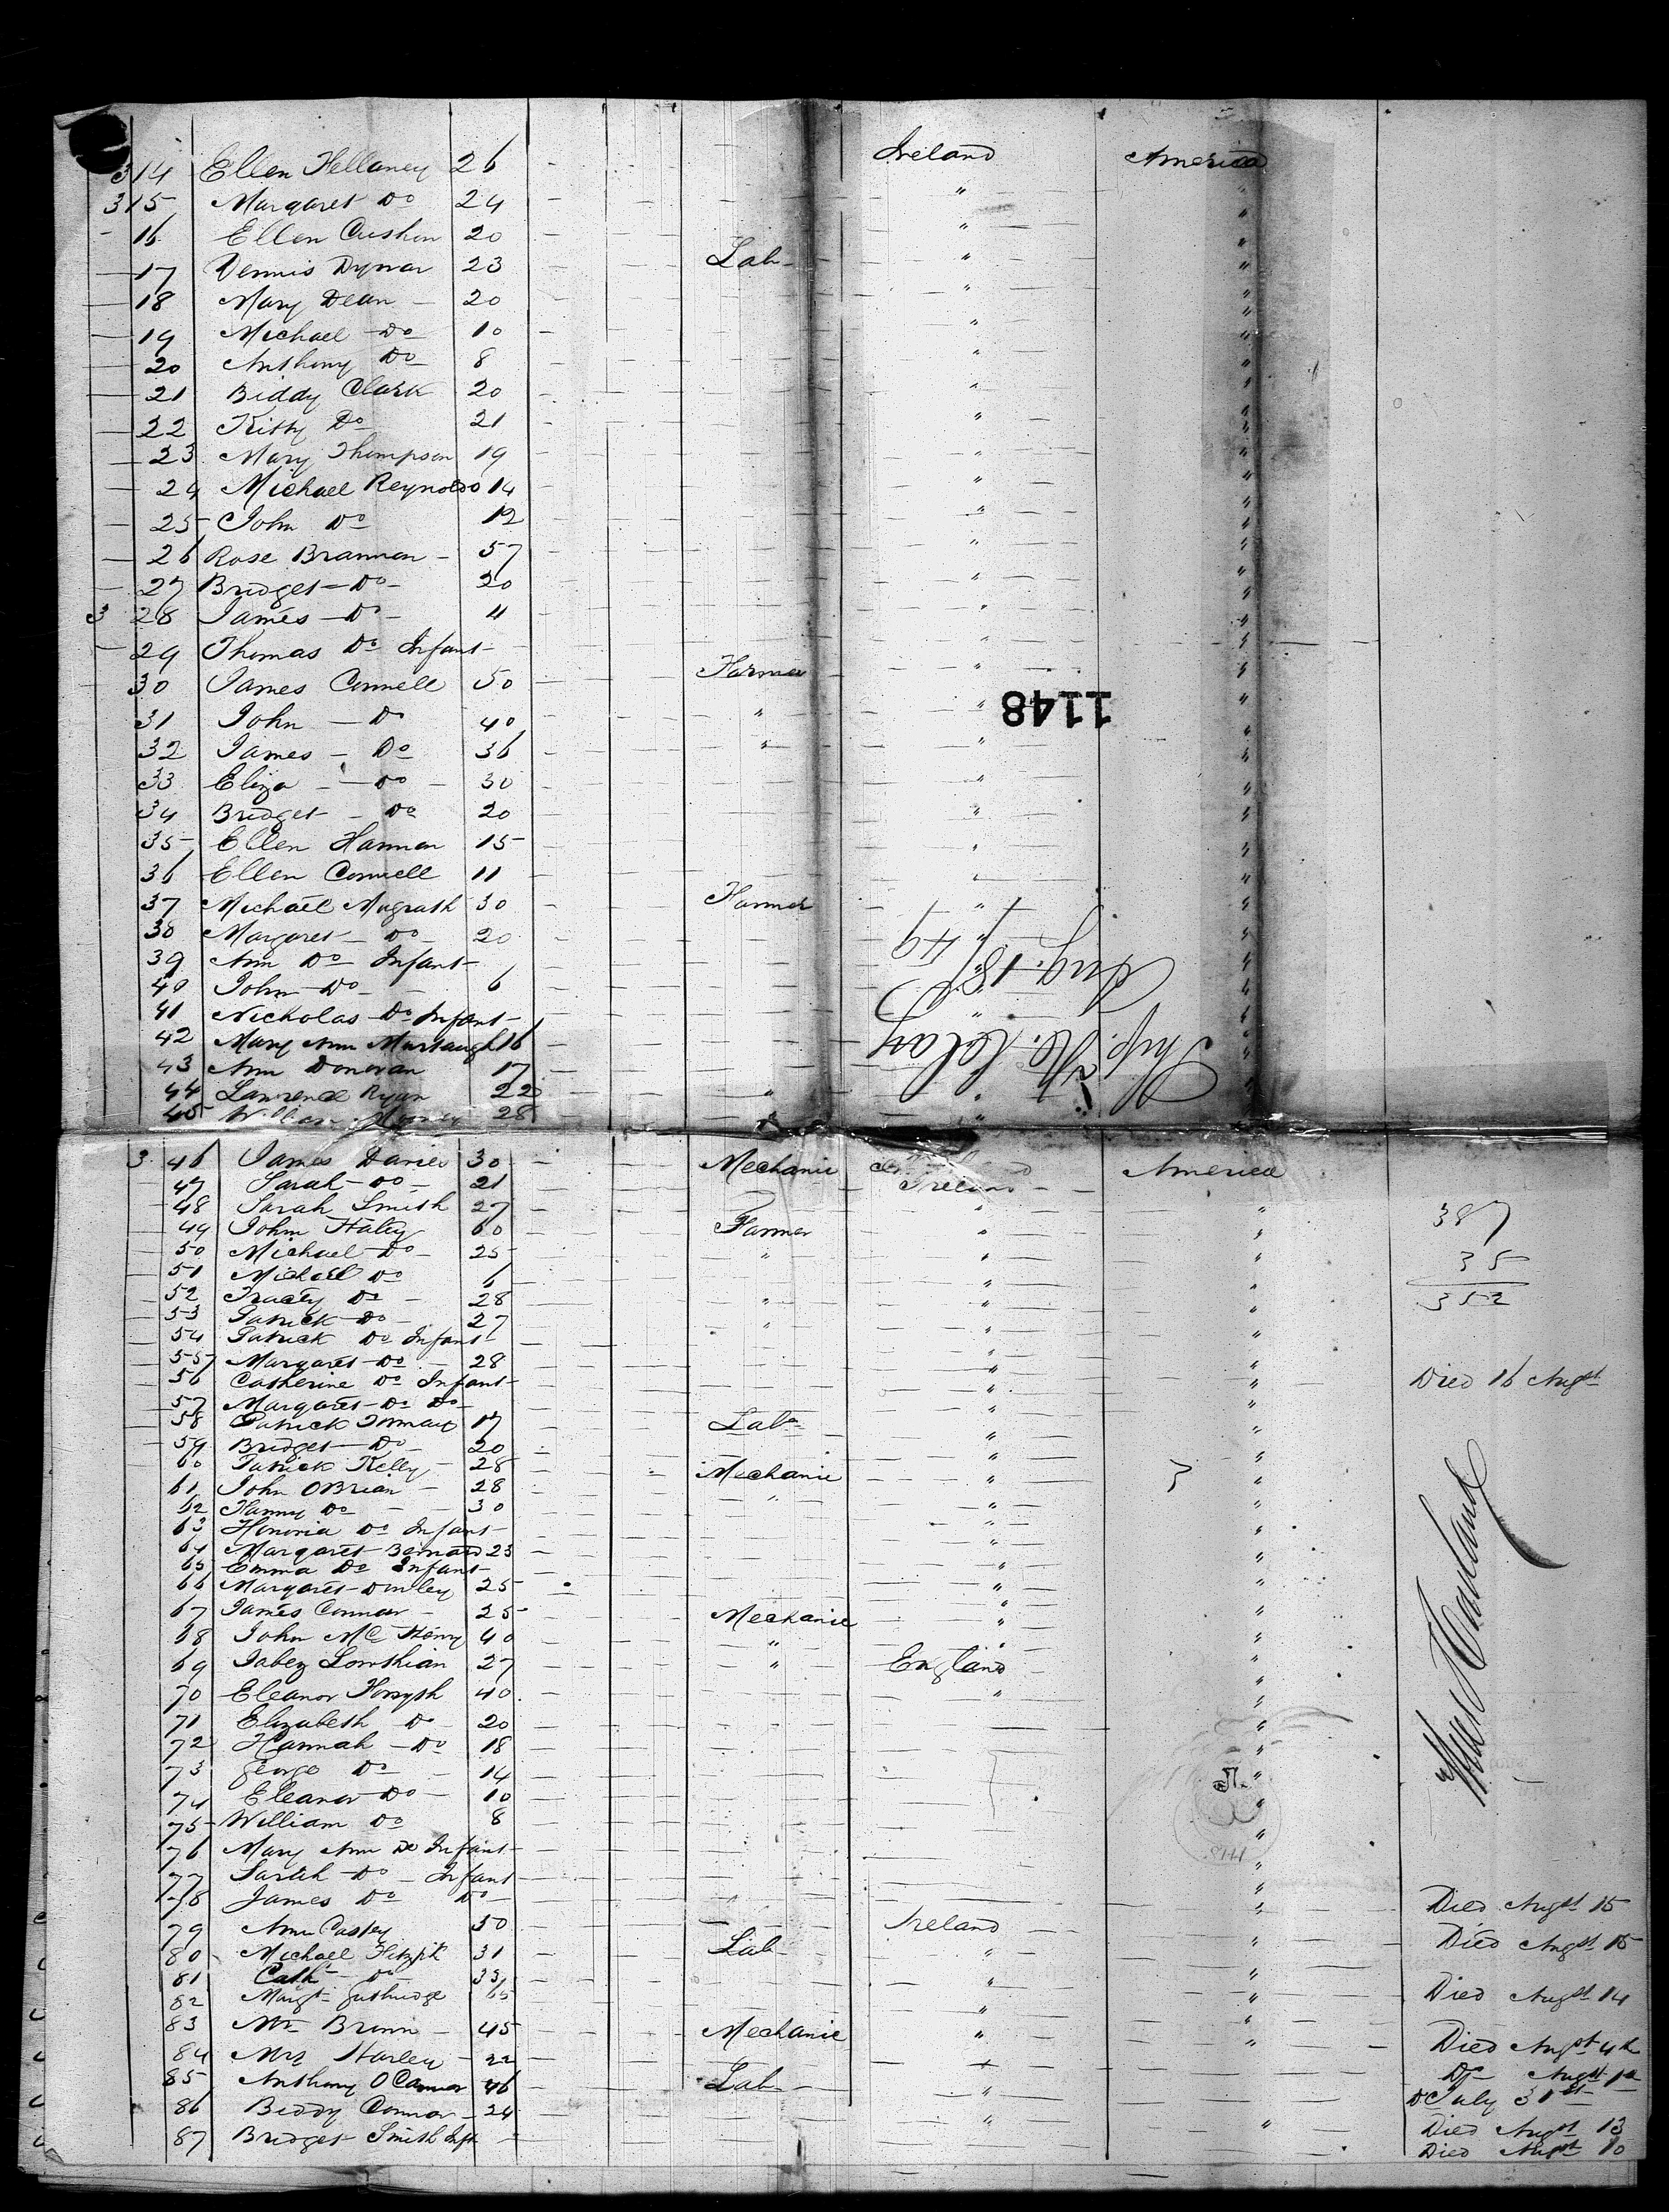 Ireland America
314 Ellen Hellaney 26
315 Margaret Do 24 "
16 Ellen Cushen 20 "
17 Dennis 23 Lab "
18 Mary Dean 20 "
19 Michael Do 10 "
20 Anthony Do 8 "
21 Biddy Clark 20 "
22 Kitty Do 21 "
23 Mary Thompson 19 "
24 Michael Reynolds 14 "
25 John Do 12 "
26 Rose Brannan 57 "
27 Bridget Do 20 "
3 28 James Do 4 "
29 Thomas Do Infant "
30 James Connell 50 Farmer "
31 John Do 40 " "
32 James Do 36 " "
33 Eliza Do 30 "
34 Bridget Do 20 "
35 Ellen Hannon 15 "
36 Ellen Connell 11 "
37 Michael Mugrath 30 Farmer "
38 Margaret Do 20 "
39 Ann Do Infant "
40 John Do 6 "
41 Nicholas Do Infant "
42 Mary Ann Murtaugh 16 "
43 Ann Donovan 17 "
44 Lawrence Ryan 22 " "
45 William 28 "
1148
Ship H. Clay
Aug. 18/49
3 46 James Davies 30 Mechanic Ireland America
47 Sarah Do 21
48 Sarah Smith 27 " "
49 John Haley 60 Farmer " "
50 Michael Do 25 " " "
51 Michael Do 6 " "
52 Do 28 " " "
53 Patrick Do 27 " " "
54 Patrick Do Infant " "
55 Margaret Do 28 " "
56 Catherine Do Infant " " Died 16 Augst
57 Margaret Do Do " "
58 Patrick 17 Lab " "
59 Bridget Do 20 " "
60 Patrick Kelly 28 Mechanic " "
61 John OBrian 28 " " "
62 Fanny Do 30 " "
63 Honoria Do Infant " "
64 Margaret Bernard 23 " "
65 Emma Do Infant " "
66 Margaret Donley 25 " "
67 James Connor 25 Mechanic " "
68 John Mc Henry 40 " " "
69 Jabez Lowthian 27 " England "
70 Eleanor Forsyth 40 " "
71 Elizabeth Do 20 "
72 Hannah Do 18 "
73 George Do 14 "
74 Eleanor Do 10 "
75 William Do 8 "
76 Mary Ann Do Infant
77 Sarah Do Infant "
78 James Do Do " Died Augst 15
79 Ann Caskey 30 Ireland " Died Augst 15
80 Michael Fitzpk 31 Lab " "
81 Cath Do 33 " " Died Augst 14
82 Margt 65 " "
83 Brown 45 Mechanic " " Died Augst 4th
84 Mrs Harley 22 " Do Augst
85 Anthony OConnor 46 Lab " D July 31st
86 Biddy Connor 24 " " Died Augst 13
87 Bridget Smith Inft Died Augst 10
387
35
352